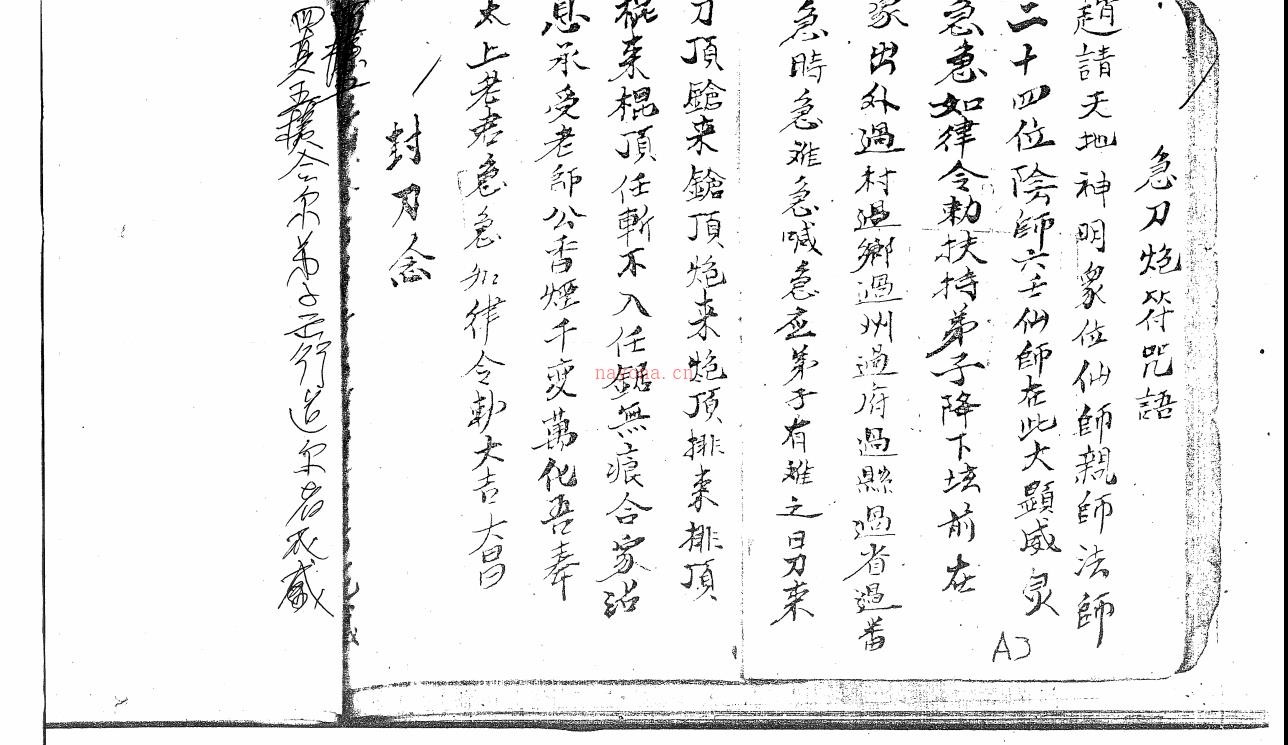 急刀炮符咒語
趙請天地神明眾位仙師親師法師
二十四位陰師六壬仙師在此大顯威灵
急急如律令勅扶持弟子降下坛前在
家出外過村過鄉過州過府過縣過省過番
急時急难急喊急应弟子有难之日刀来
刀頂鎗来鎗頂炮来炮頂排来排頂
棍来棍頂任斬不入任鋸無痕合家沾
恩承受老師公香煙千変萬化吾奉
太上老君急急如律令勅大吉大昌
封刀念
令尔弟子
行
A3
nayona.cn